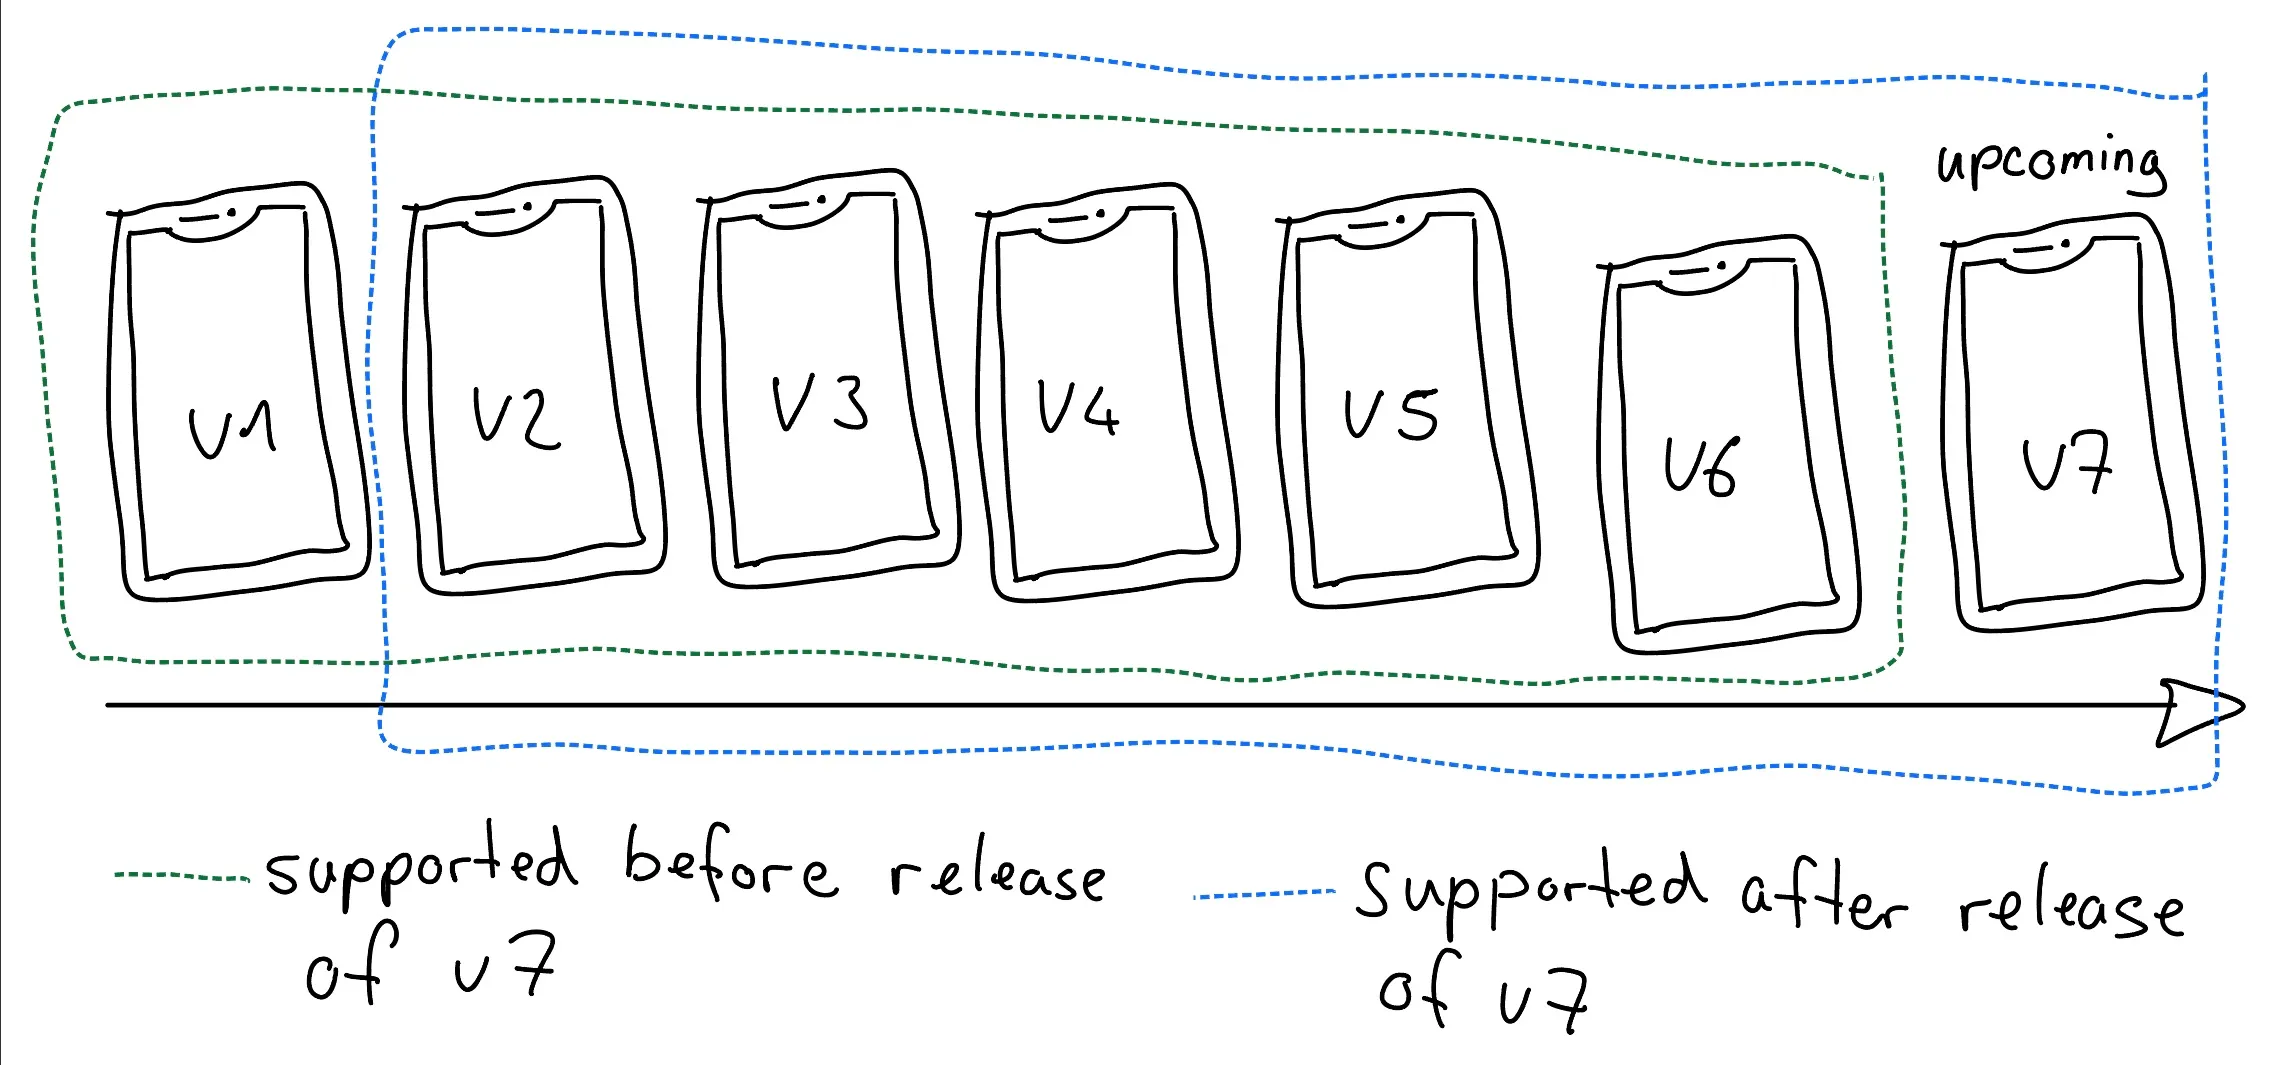 upcoming
v1
v2
v3
v4
v5
v6
v7
supported before release
of v7
supported after release
of v7